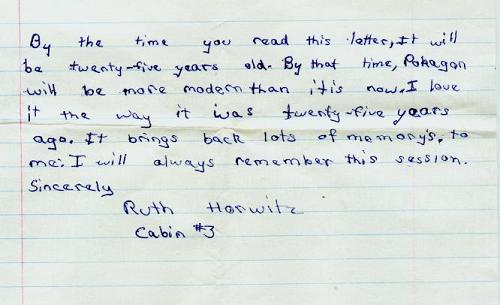 By the time you read this letter, It will
be twenty-five years old. By that time, Pokagon
will be more modern than it is now. I love
it the way it was twenty-five years
ago. It brings back lots of memory's, to
me. I will always remember this session.
Sincerely
Ruth Horwitz
Cabin #3